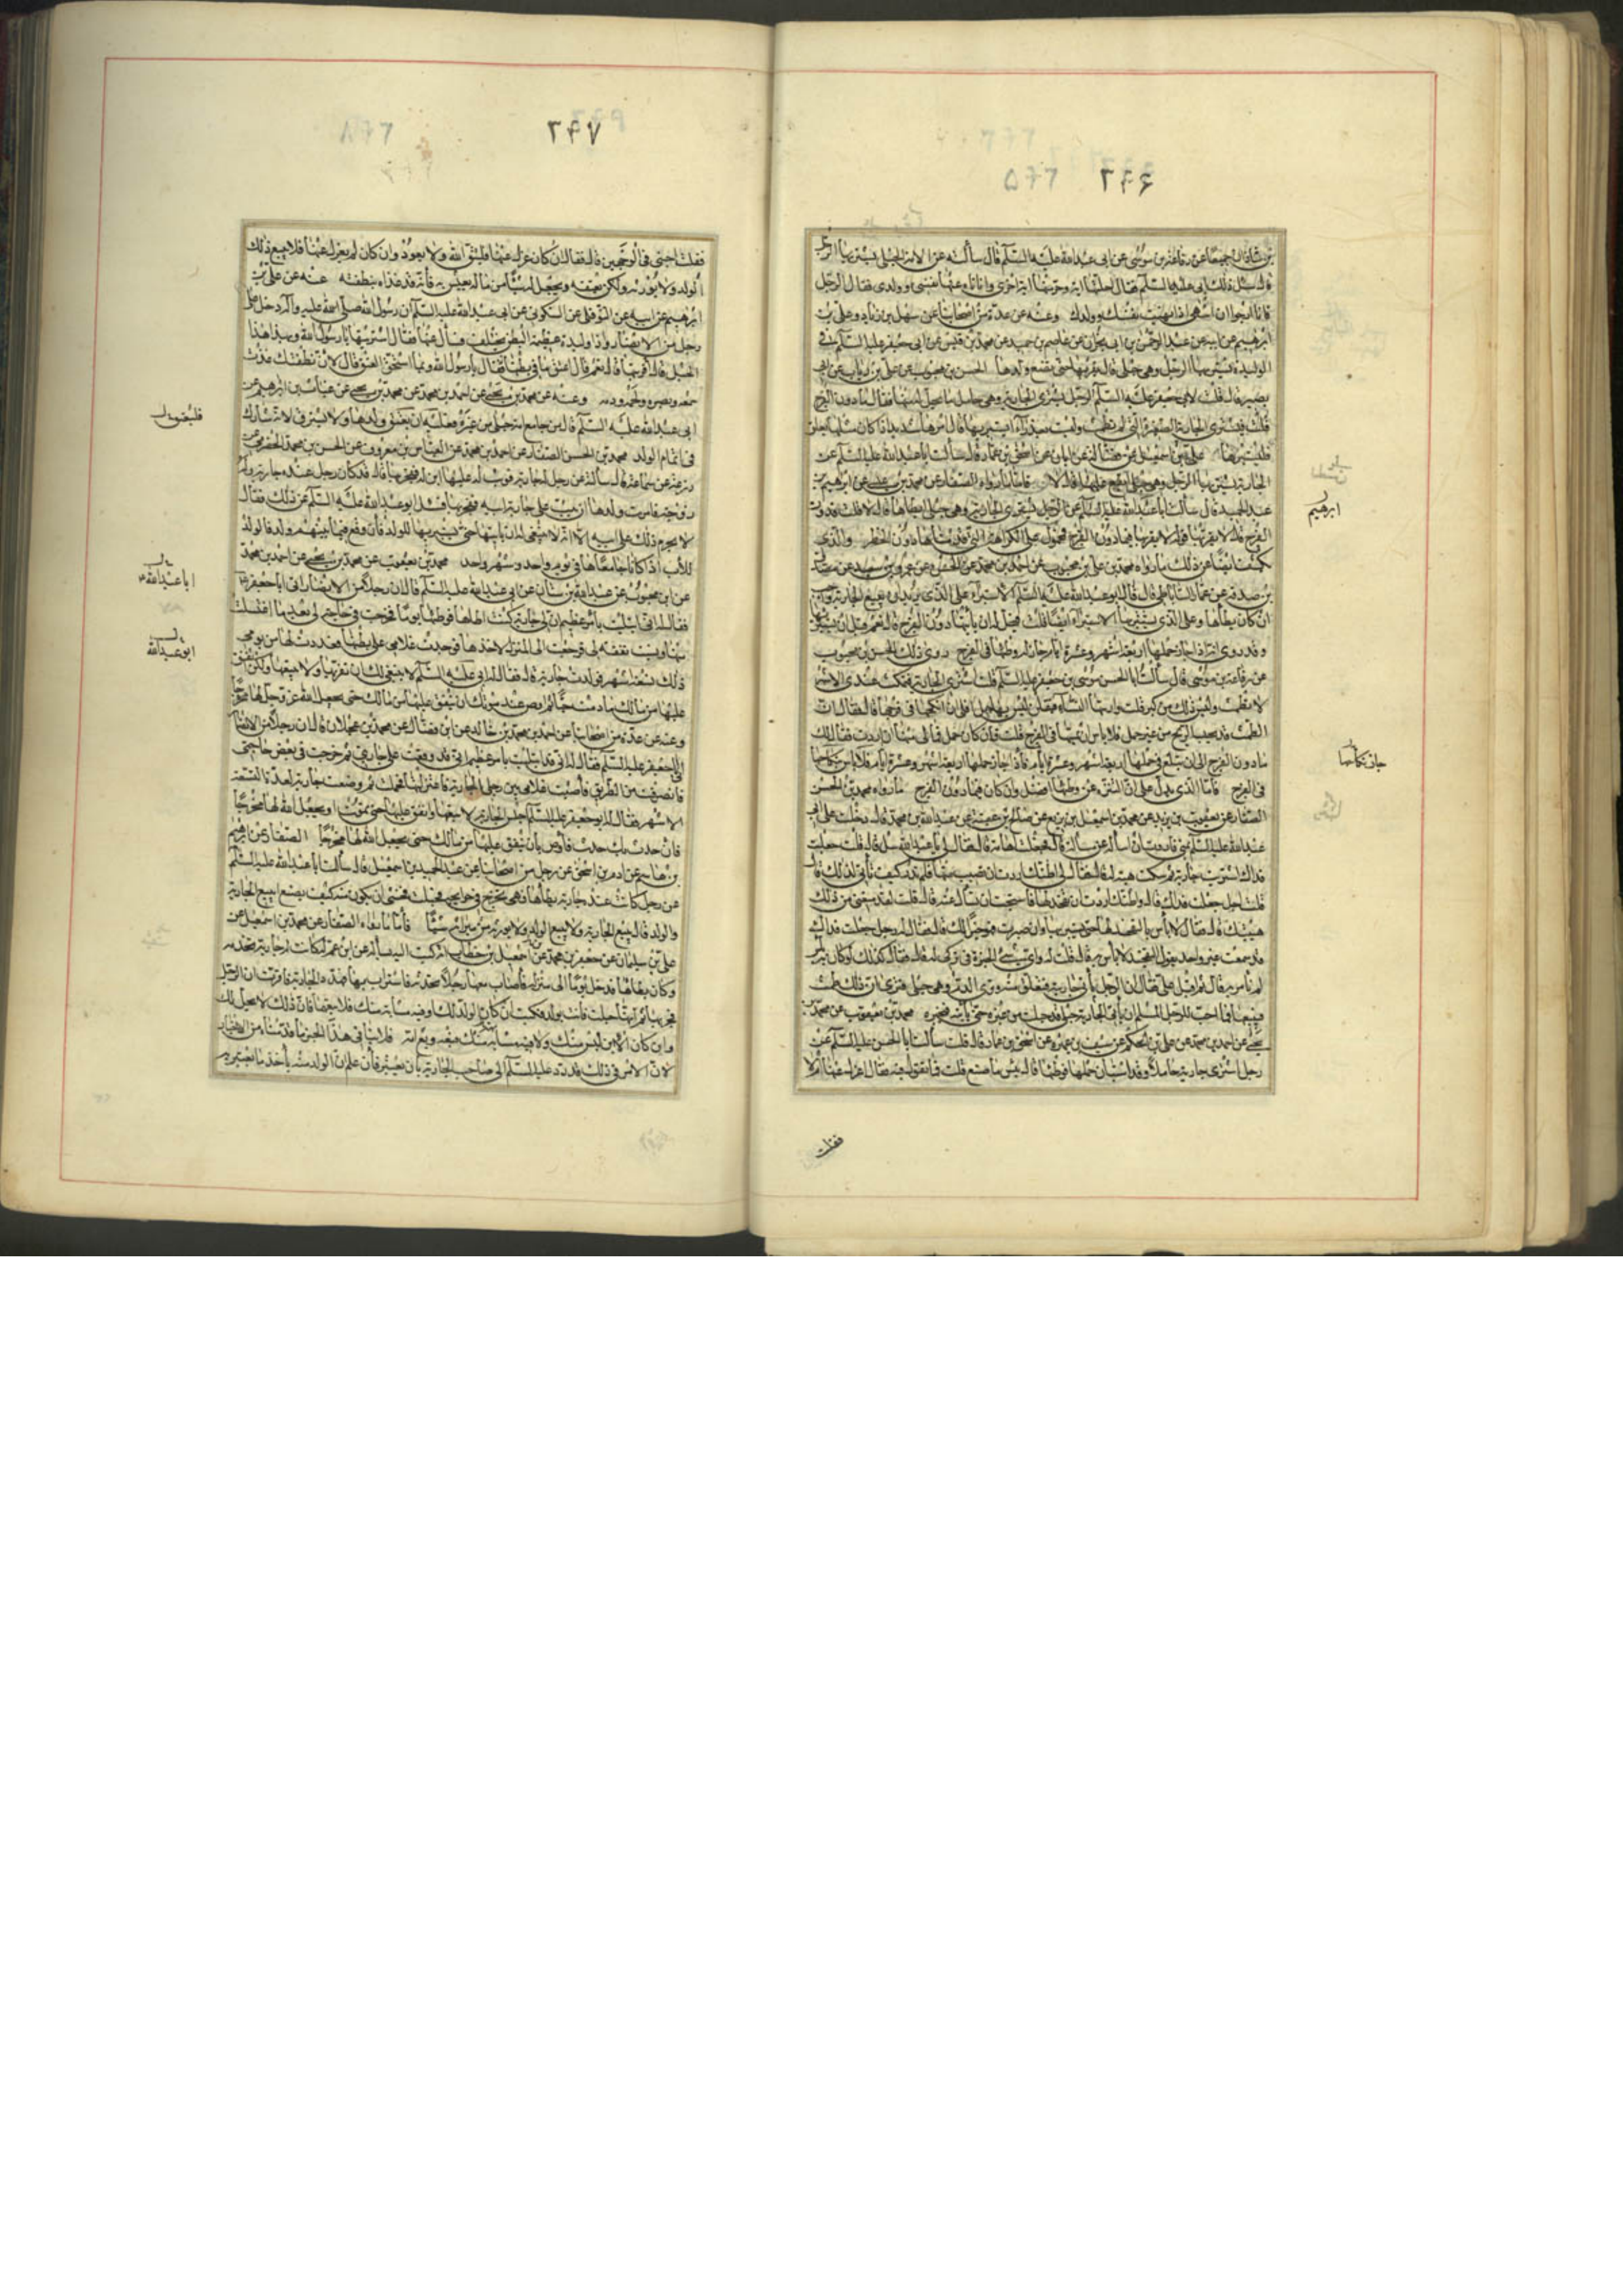 ۲۶۶ ۲۶۵
بن شاذان جميعا عن رفاعة بن موسى عن ابى عبد الله عليه السلم قال سألته عن الامة الحبلى يشتريها الرجل
قال سئل عن ذلك ابى عليه السلم فقال احلتها اية وحرمتها اية اخرى وانا ناه عنها نفسى وولدى فقال الرجل
فانا ارجوا ان انتهى اذا نهيت نفسك وولدك وعنه عن عدة من اصحابنا عن سهل بن زياد وعلى بن
ابرهيم عن ابيه عن عبد الرحمن بن ابى نجران عن عاصم بن حميد عن محمد بن قيس عن ابى جعفر عليه السلم فى
الوليدة يشتريها الرجل وهى حبلى قال لا يقربها حتى تضع ولدها الحسن بن محبوب عن على بن رياب عن ابى
بصير قال قلت لابى جعفر عليه السلم الرجل يشترى الجارية وهى حامل ما يحل له منها فقال ما دون الفرج
قلت فيشترى الجارية الصغيرة التى لم تطمث وليست بعذراء ايستبريها قال امرها شديد اذا كان مثلها يعلق
فليستبرئها
الجارية يشتريها الرجل وهى حبلى ايقع عليها قال لا فاما ما رواه الصفار عن محمد بن عن ابراهيم بن
عبد الحميد قال سألت ابا عبد الله عليه السلم عن الرجل يشترى الجارية وهى حبلى ايطأها قال لا قلت فدون
الفرج قال لا يقربها فقوله لا يقربها فيما دون الفرج محمول على الكراهية التى قدمناها دون الحظر والذى
يكشف ايضا عن ذلك ما رواه محمد بن على بن محبوب عن احمد بن محمد عن الحسن عن عمرو بن سعيد عن مصدق
بن صدقة عن عمار الساباطى قال قال ابو عبد الله عليه السلم الاستبراء على الذى يريد ان يبيع الجارية واجب
ان كان يطأها وعلى الذى يشتريها الاستبراء ايضا قلت فيحل له ان يأتيها دون الفرج قال نعم قبل ان يستبرئها
وقد روى انه اذا جاز حملها اربعة اشهر وعشرة ايام جاز له وطئها فى الفرج روى ذلك الحسن بن محبوب
عن رفاعة بن موسى قال سألت ابا الحسن موسى بن جعفر عليه السلم قلت اشترى الجارية فتمكث عندى الاشهر
لا تطمث وليس ذلك من كبر قلت واريتها النساء فيقلن ليس بها حبل افلى ان انكحها فى فرجها قال فقال ان
الطمث قد يحبسه الريح من غير حبل فلا بأس ان تمسها فى الفرج قلت فان كان حمل فما لى منها ان اردت فقال لك
ما دون الفرج الى ان تبلغ فى حملها اربعة اشهر وعشرة ايام فاذا جاز حملها اربعة اشهر وعشرة ايام فلا بأس بنكاحها
فى الفرج فاما الذى يدل على ان التنزه عن وطئها افضل وان كان فيما دون الفرج ما رواه محمد بن الحسن
الصفار عن يعقوب بن يزيد عن محمد بن اسمعيل بن بزيع عن صالح بن عقبة عن عبد الله بن محمد قال دخلت على ابى
عبد الله عليه السلم بمنى فاردت ان اسأله عن مسألة قال فجعلت اهابه قال فقال لى يا عبد الله سل قال قلت جعلت
فداك اشتريت جارية ثم سكت هيبة له قال فقال لى اظنك اردت ان تصيب منها فلم تدر كيف تأتى لذلك قال
قلت اجل جعلت فداك قال واظنك اردت ان تفخذ لها فاستحييت ان تسأل عنه قال قلت لقد منعتنى من ذلك
هيبتك قال فقال لا بأس بالتفخيذ لها حتى تستبريها وان صبرت فهو خير لك قال فقال له رجل جعلت فداك
قد سمعت غير واحد يقول التفخيذ لا بأس به قال قلت له واى شىء الخيرة فى تركى له قال فقال كذلك لو كان به بأس
لم نأمر به قال ثم اقبل على فقال ان الرجل يأتى جاريته فتعلق منه وترى الدم وهى حبلى فترى ان ذلك طمث
فيبيعها فما احب للرجل المسلم ان يأتى الجارية حبلى قد حبلت من غيره حتى يأتيه فيخبره محمد بن يعقوب عن محمد بن
يحيى عن احمد بن محمد عن على بن الحكم عن سيف بن عميرة عن اسحق بن عمار قال سألت ابا الحسن عليه السلم عن
رجل اشترى جارية حاملا وقد استبان حملها فوطئها قال بئس ما صنع قلت فما تقول فيه فقال اعزل عنها ام لا
ابرهيم
جاز نكاحها
فقلت
۲۶۷ ۲۶۸
فقلت اجبنى فى الوجهين قال فقال ان كان عزل عنها فليتق الله ولا يعود وان كان لم يعزل عنها فلا يبيع ذلك
الولد ولا يورثه ولكن يعتقه ويجعل له شيئا من ماله يعيش به فانه قد غذاه بنطفته عنه عن على بن
ابرهيم عن ابيه عن النوفلى عن السكونى عن ابى عبد الله عليه السلم ان رسول الله صلى الله عليه واله دخل على
رجل من الانصار واذا وليدة عظيمة البطن تختلف فسأل عنها فقال اشتريتها يا رسول الله وبها هذا
الحبل قال اقربتها قال نعم قال اعتق ما فى بطنها فقال يا رسول الله وبما استحق العتق قال لان نطفتك غذت
سمعه وبصره ولحمه ودمه وعنه عن محمد بن يحيى عن احمد بن محمد عن محمد بن يحيى عن غياث بن ابرهيم عن
ابى عبد الله عليه السلم قال من جامع امة حبلى من غيره فعليه ان يعتق ولدها ولا يسترق لانه شارك
فى اتمام الولد محمد بن الحسن الصفار عن احمد بن محمد عن العباس بن معروف عن الحسن بن محمد الحضرمى عن
زرعة عن سماعة قال سألته عن رجل له جارية فوثب عليها ابن له ففجر بها قال قد كان رجل عنده جارية وله
زوجة فامرت ولدها ان يثب على جارية ابيه ففجر بها فسئل ابو عبد الله عليه السلم عن ذلك فقال
لا يحرم ذلك على ابيه الا انه لا ينبغى له ان يأتيها حتى يستبريها للولد فان وقع فيما بينهما ولد فالولد
للأب اذا كانا جامعاها فى يوم واحد وشهر واحد محمد بن يعقوب عن محمد بن يحيى عن احمد بن محمد
عن ابن محبوب عن عبد الله بن سنان عن ابى عبد الله عليه السلم قال ان رجلا من الانصار اتى ابا جعفر
فقال انى ابتليت بامر عظيم ان لى جارية كنت اطأها فوطئتها يوما فخرجت فى حاجة لى بعد ما اغتسلت
منها ونسيت نفقة لى فرجعت الى المنزل لاخذها فوجدت غلامى على بطنها فعددت لها من يومى
ذلك تسعة اشهر فولدت جارية قال فقال له ابى عليه السلم لا ينبغى لك ان تقربها ولا تبيعها ولكن انفق
عليها من مالك ما دمت حيا ثم اوص عند موتك ان ينفق عليها من مالك حتى يجعل الله عز وجل لها مخرجا
وعنه عن عدة من اصحابنا عن احمد بن محمد بن خالد عن ابن فضال عن محمد بن عجلان قال ان رجلا من الانصار
اتى ابا جعفر عليه السلم فقال له انى قد ابتليت بامر عظيم انى قد وقعت على جاريتى ثم خرجت فى بعض حاجتى
فانصرفت من الطريق فاصبت غلامى بين رجلى الجارية فاعتزلتها فحملت ثم وضعت جارية لعدة التسعة
الاشهر فقال له ابو جعفر عليه السلم احبس الجارية لا تبعها وانفق عليها حتى تموت او يجعل الله لها مخرجا
فان حدث بك حدث فاوص بان ينفق عليها من مالك حتى يجعل الله لها مخرجا الصفار عن ابرهيم
بن هاشم عن ادم بن اسحق عن رجل من اصحابنا عن عبد الحميد بن اسمعيل قال سألت ابا عبد الله عليه السلم
عن رجل كانت عنده جارية يطأها وهى تخرج فى حوايجه فحبلت فخشى ان يكون منه كيف يصنع ايبيع الجارية
والولد قال يبيع الجارية ولا يبيع الولد ولا يورثه من ميراثه شيئا فاما ما رواه الصفار عن محمد بن اسمعيل عن
على بن سليمان عن جعفر بن محمد عن اسمعيل بن خطاب انه كتب اليه يسأله عن ابن عم له كانت له جارية تخدمه
وكان يطأها فدخل يوما الى منزله فاصاب معها رجلا تحدثه فاستراب بها فهدد الجارية فاقرت ان الرجل
فجر بها ثم انها حبلت فاتت بولد فكتب ان كان الولد لك او فيه مشابهة منك فلا تبعهما فان ذلك لا يحل لك
وان كان الابن ليس منك ولا فيه مشابهة منك فبعه وبع امه فلا ينافى هذا الخبر ما قدمناه من الاخبار
لان الامر فى ذلك قد رد عليه السلم الى صاحب الجارية بان يعتبر فان علم ان الولد منه يأخذ ما يعتبر به
ابا عبد الله
ابو عبد الله